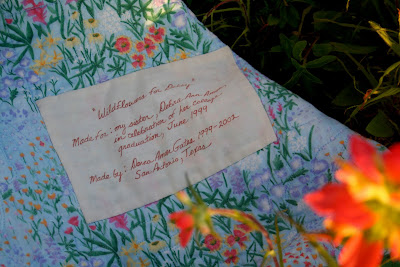 "Wildflowers for Daisy"
Made for: my sister, Debra Ann
in celebration of her college
graduation, June 1999
Made by: Donna 1999-2002
San Antonio, Texas